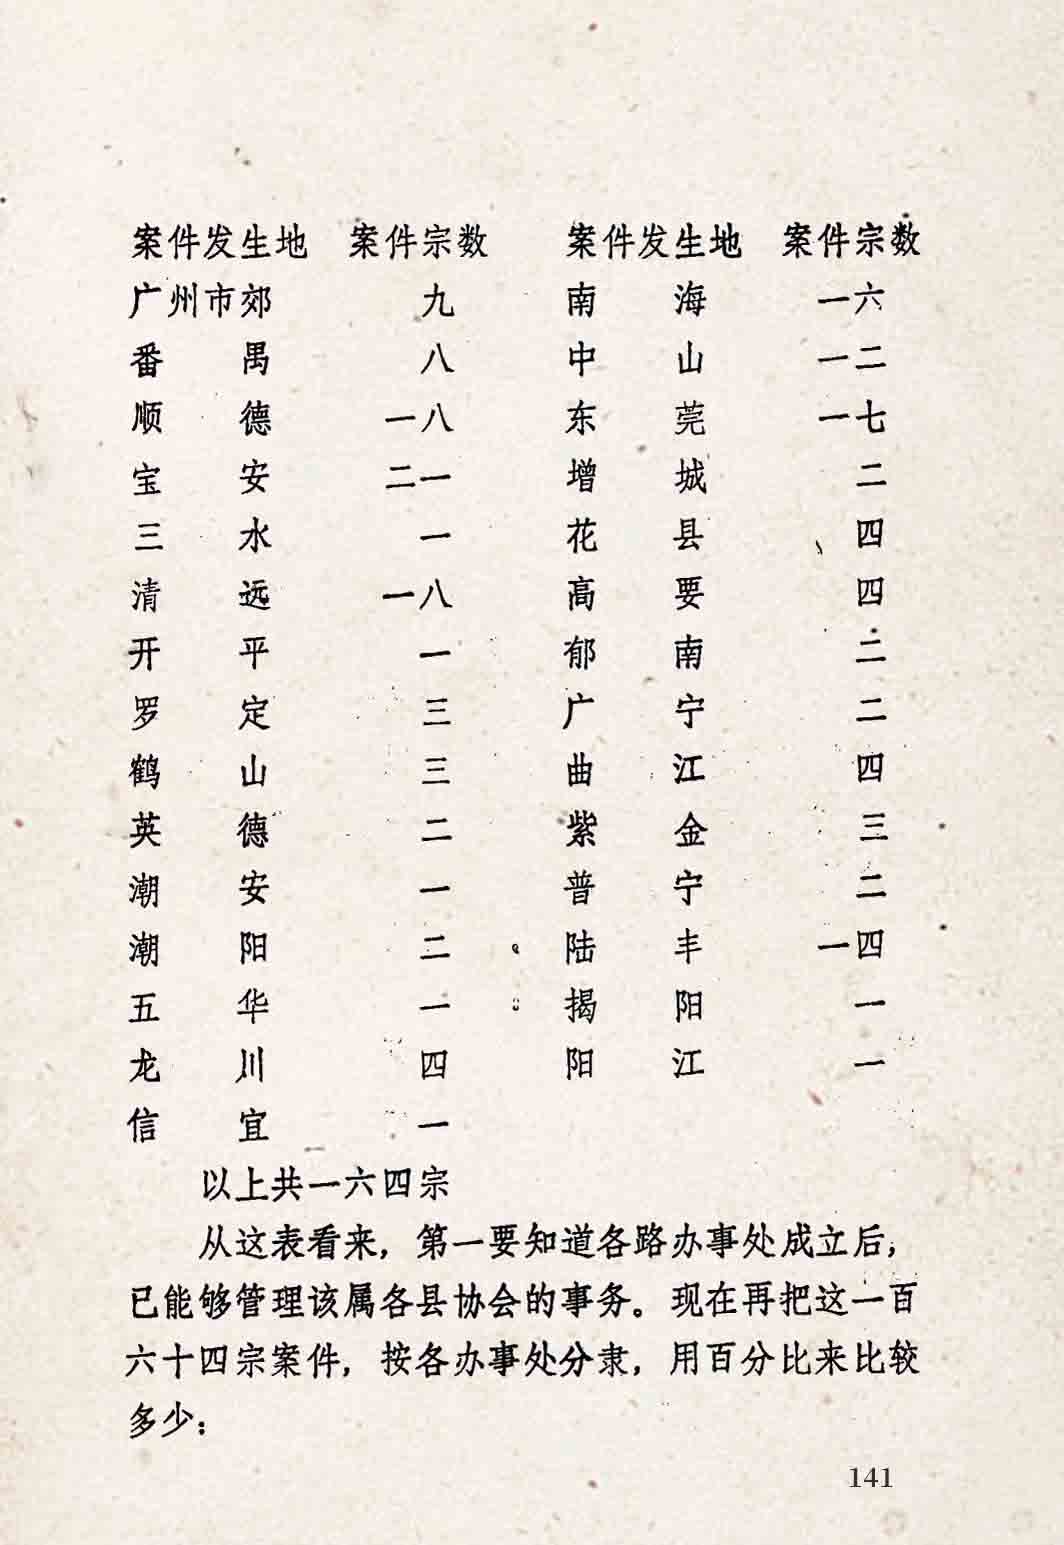 案件发生地 案件宗数 案件发生地 案件宗数
广州市郊 九 南海 一六
番禺 八 中山 一二
顺德 一八 东莞 一七
宝安 二一 增城 二
三水 一 花县 四
清远 一八 高要 四
开平 一 郁南 二
罗定 三 广宁 二
鹤山 三 曲江 四
英德 二 紫金 三
潮安 一 普宁 二
潮阳 二 陆丰 一四
五华 一 揭阳 一
龙川 四 阳江 一
信宜 一
以上共一六四宗
从这表看来，第一要知道各路办事处成立后，
已能够管理该属各县协会的事务。现在再把这一百
六十四宗案件，按各办事处分隶，用百分比来比较
多少：
141